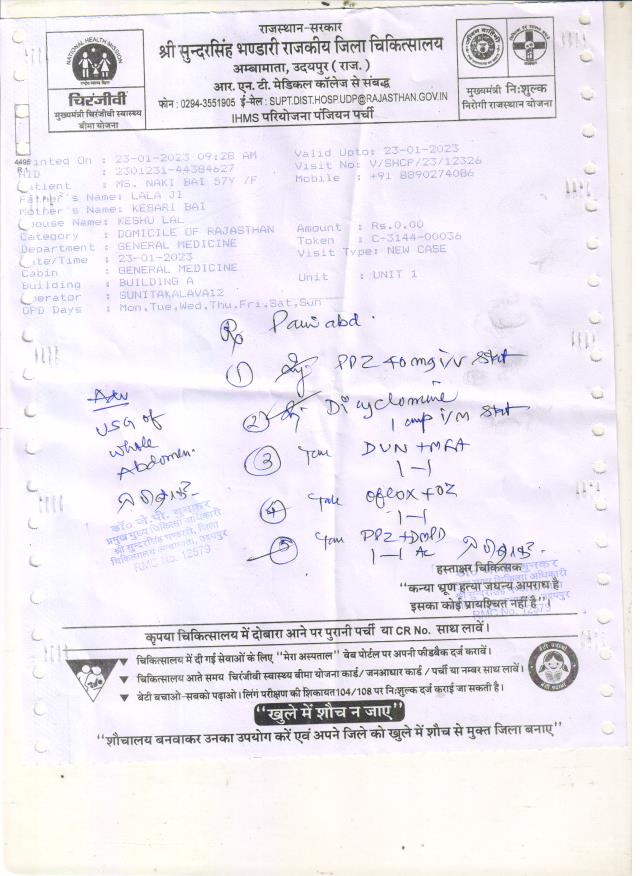 राजस्थान-सरकार
श्री सुन्दरसिंह भण्डारी राजकीय जिला चिकित्सालय
अम्बामाता, उदयपुर ( राज. )
आर. एन. टी. मेडिकल कॉलेज से संबद्ध
फोन : 0294-3551905 ई-मेल : SUPT.DIST.HOSP.UDP@RAJASTHAN.GOV.IN
IHMS परियोजना पंजियन पर्ची
NATIONAL HEALTH MISSION
चिरंजीवी
मुख्यमंत्री चिरंजीवी स्वास्थ्य
बीमा योजना
मुख्यमंत्री निःशुल्क
निरोगी राजस्थान योजना
inted On : 23-01-2023 09:28 AM Valid Upto: 23-01-2023
: 2301231-44384627 Visit No: V/SHCP/23/12326
atient : MS. NAKI BAI 57Y /F Mobile : +91 8890274086
Father's Name: LALA JI
Mother's Name: KESARI BAI
pouse Name: KESHU LAL
Category : DOMICILE OF RAJASTHAN Amount : Rs.0.00
Department : GENERAL MEDICINE Token : C-3144-00036
ate/Time : 23-01-2023 Visit Type: NEW CASE
Cabin : GENERAL MEDICINE
Building : BUILDING A Unit : UNIT 1
perator : SUNITAKALAVA12
OPD Days : Mon,Tue,Wed,Thu,Fri,Sat,Sun
Rx Pain abd.
1 Inj PPZ 40mg i/v Stat
2 Inj Dicyclomine
1 amp i/m Stat
3
1-1
4 Oflox + OZ
1-1
5 PPZ + DMPD
1-1 AC
Adv
USG of
whole
Abdomen.
प्रमुख मुख्य चिकित्सा अधिकारी
श्री सुन्दरसिंह भण्डारी, जिला
चिकित्सालय अम्बामाता, उदयपुर
RMC No. 12579
हस्ताक्षर चिकित्सक
RMC No. 12579
“कन्या भ्रूण हत्या जघन्य अपराध है
इसका कोई प्रायश्चित नहीं है”।
कृपया चिकित्सालय में दोबारा आने पर पुरानी पर्ची या CR No. साथ लावें।
चिकित्सालय में दी गई सेवाओं के लिए "मेरा अस्पताल" वेब पोर्टल पर अपनी फीडबैक दर्ज करावें।
चिकित्सालय आते समय चिरंजीवी स्वास्थ्य बीमा योजना कार्ड / जनआधार कार्ड / पर्ची या नम्बर साथ लावें।
बेटी बचाओ-सबको पढ़ाओ। लिंग परीक्षण की शिकायत 104/108 पर निःशुल्क दर्ज कराई जा सकती है।
“खुले में शौच न जाए”
“शौचालय बनवाकर उनका उपयोग करें एवं अपने जिले को खुले में शौच से मुक्त जिला बनाए”